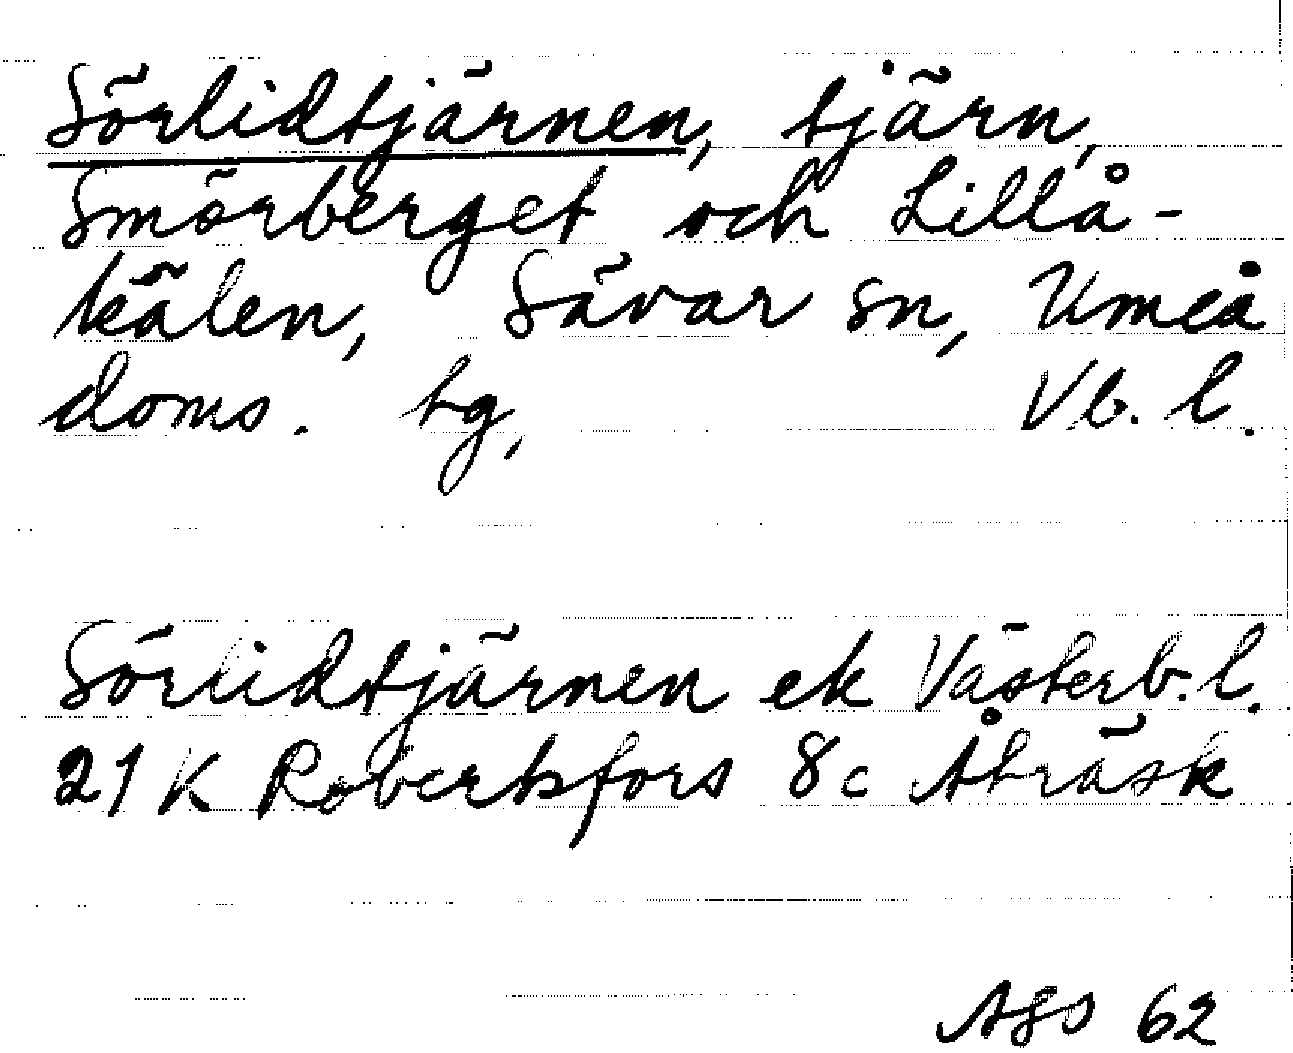 Sörlidtjärnen, tjärn,
Smörberget och Lillå-
kälen, Sävar sn, Umeå
doms. tg, Vb. l.
Sörlidtjärnen ek Västerb. l.
21 K Robertsfors 8 c Åträsk
62